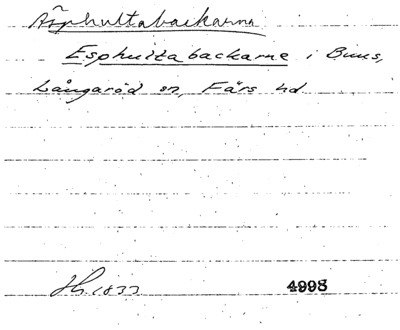 Äsphultabackarna
Esphultabackarne i Buus,
Långaröd sn, Färs hd
1833 4998